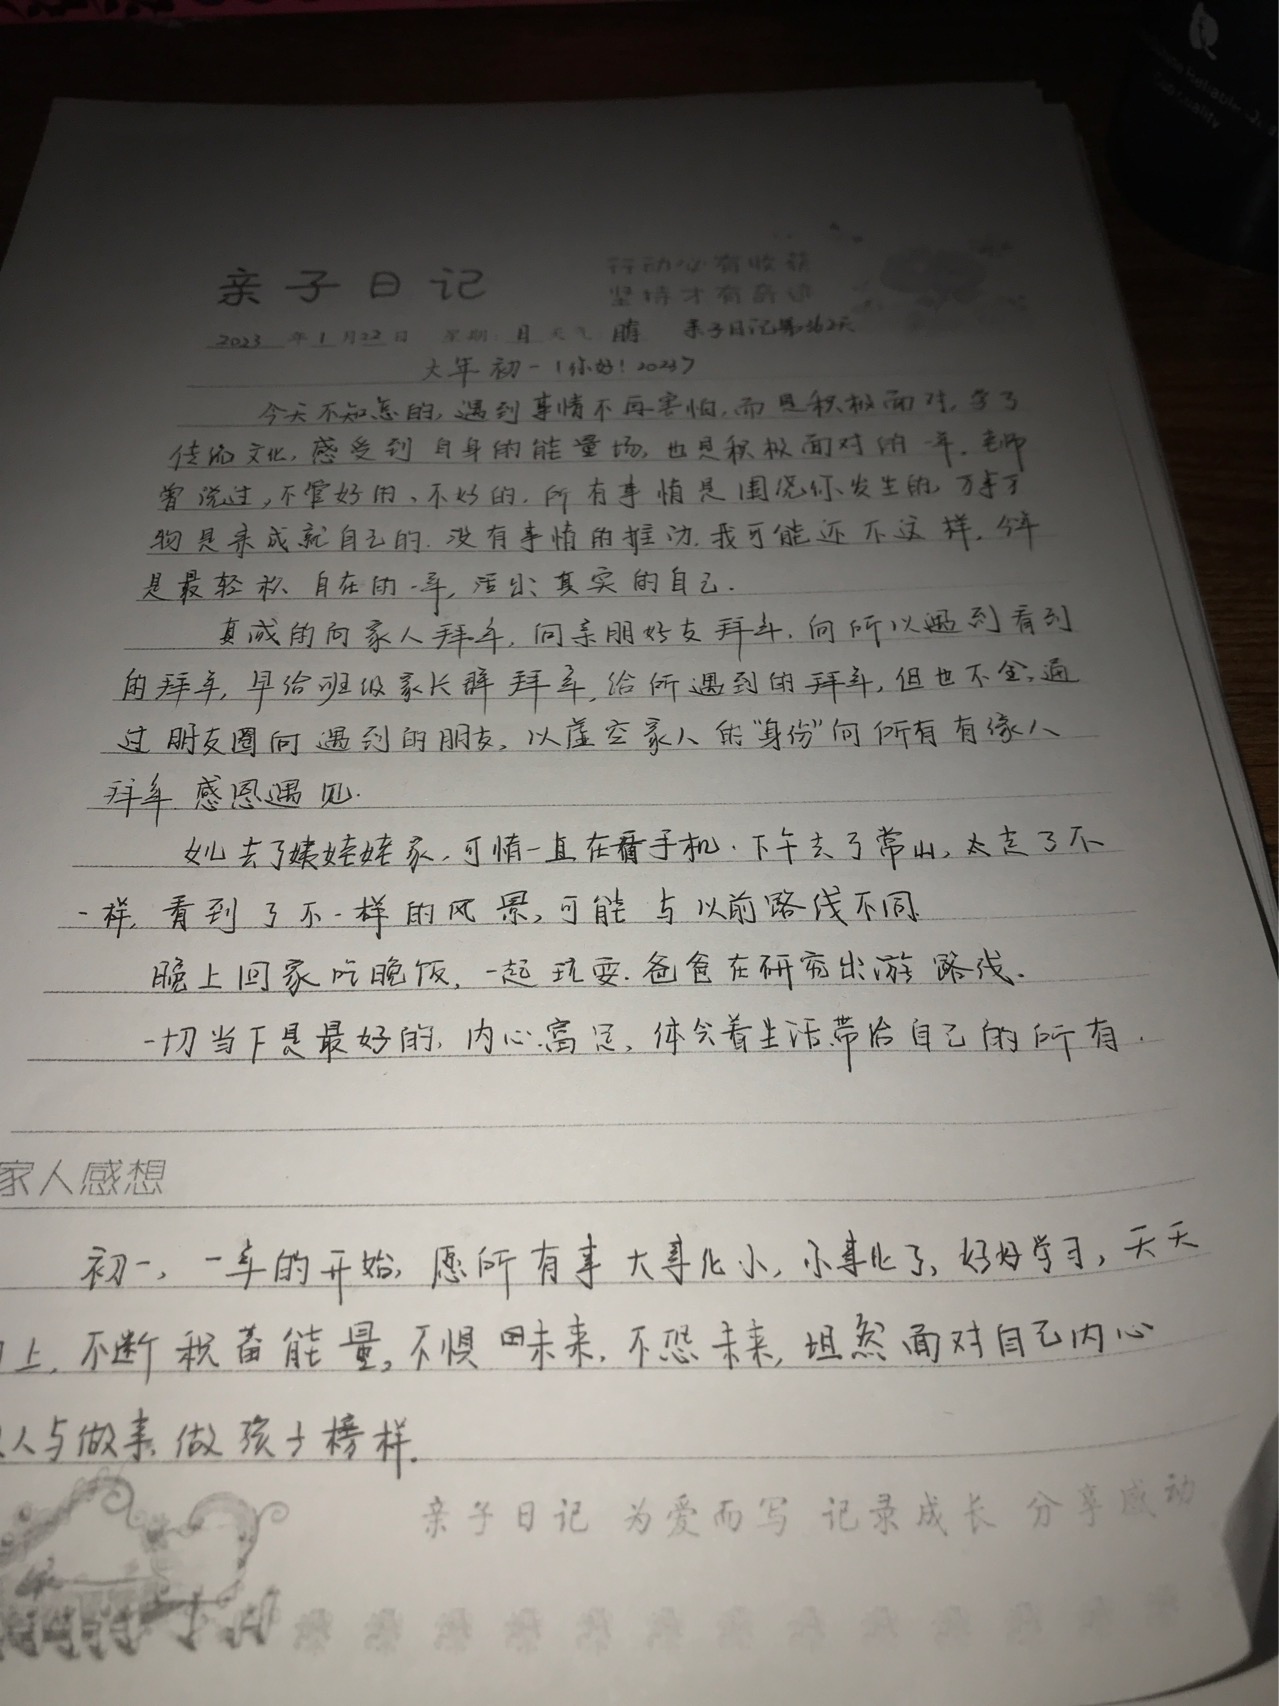 亲子日记
行动必有收获
坚持才有奇迹
2023 年 1 月 22 日 星期: 日 天气: 晴 亲子日记第362天
大年初一《你好! 2023》
今天不知怎的, 遇到事情不再害怕, 而是积极面对, 学了
传统文化, 感受到自身的能量场, 也是积极面对的一年. 老师
曾说过, 不管好的、不好的. 所有事情是围绕你发生的, 万事万
物是来成就自己的. 没有事情的推动. 我可能还不这样. 今年
是最轻松 自在的一年, 活出真实的自己.
真诚的向家人拜年, 向亲朋好友拜年. 向所以遇到看到
的拜年, 早给班级家长群拜年, 给所遇到的拜年, 但也不全, 通
过朋友圈向遇到的朋友, 以虚空家人的"身份"向所有有缘人
拜年 感恩遇见.
女儿去了姨娃娃家, 可惜一直在看手机. 下午去了常山, 太走了不
一样, 看到了不一样的风景, 可能与以前路线不同.
晚上回家吃晚饭, 一起玩耍. 爸爸在研究出游路线.
一切当下是最好的, 内心富足, 体会着生活带给自己的所有.
家人感想
初一, 一年的开始, 愿所有事大事化小, 小事化了, 好好学习, 天天
向上, 不断积蓄能量, 不惧未来, 不恐未来, 坦然面对自己内心
人与做事, 做孩子榜样.
亲子日记 为爱而写 记录成长 分享感动